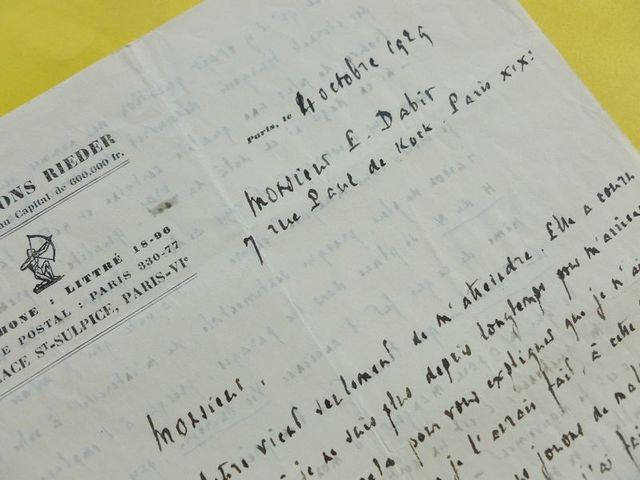 ONS RIEDER
au Capital de 600.000 fr.
HONE : LITTRÉ 18-96
E POSTAL : PARIS 330-77
LACE ST-SULPICE, PARIS-VIe
Paris, le 4 octobre 1929
Monsieur E. Dabit
7 rue Paul de Kock. Paris XXe
Monsieur,
lettre vient seulement de m'atteindre. Elle a couru
je ne suis plus depuis longtemps pour m'arriver
cela pour vous expliquer que je n'ai
je l'aurais fait, à cette
jours de mal
j'ai fai